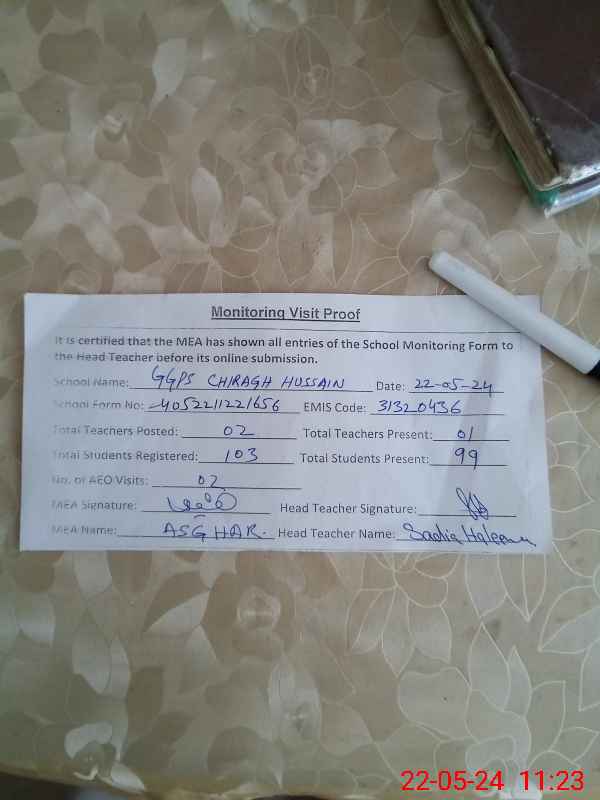 Monitoring Visit Proof
It is certified that the MEA has shown all entries of the School Monitoring Form to
the Head Teacher before its online submission.
School Name: GGPS CHIRAGH HUSSAIN Date: 22-05-24
School Form No: -4052211221656 EMIS Code: 31320436
Total Teachers Posted: 02 Total Teachers Present: 01
Total Students Registered: 103 Total Students Present: 99
No. of AEO Visits: 02
MEA Signature: Head Teacher Signature:
MEA Name: ASGHAR. Head Teacher Name: Sadia Haleema
22-05-24 11:23